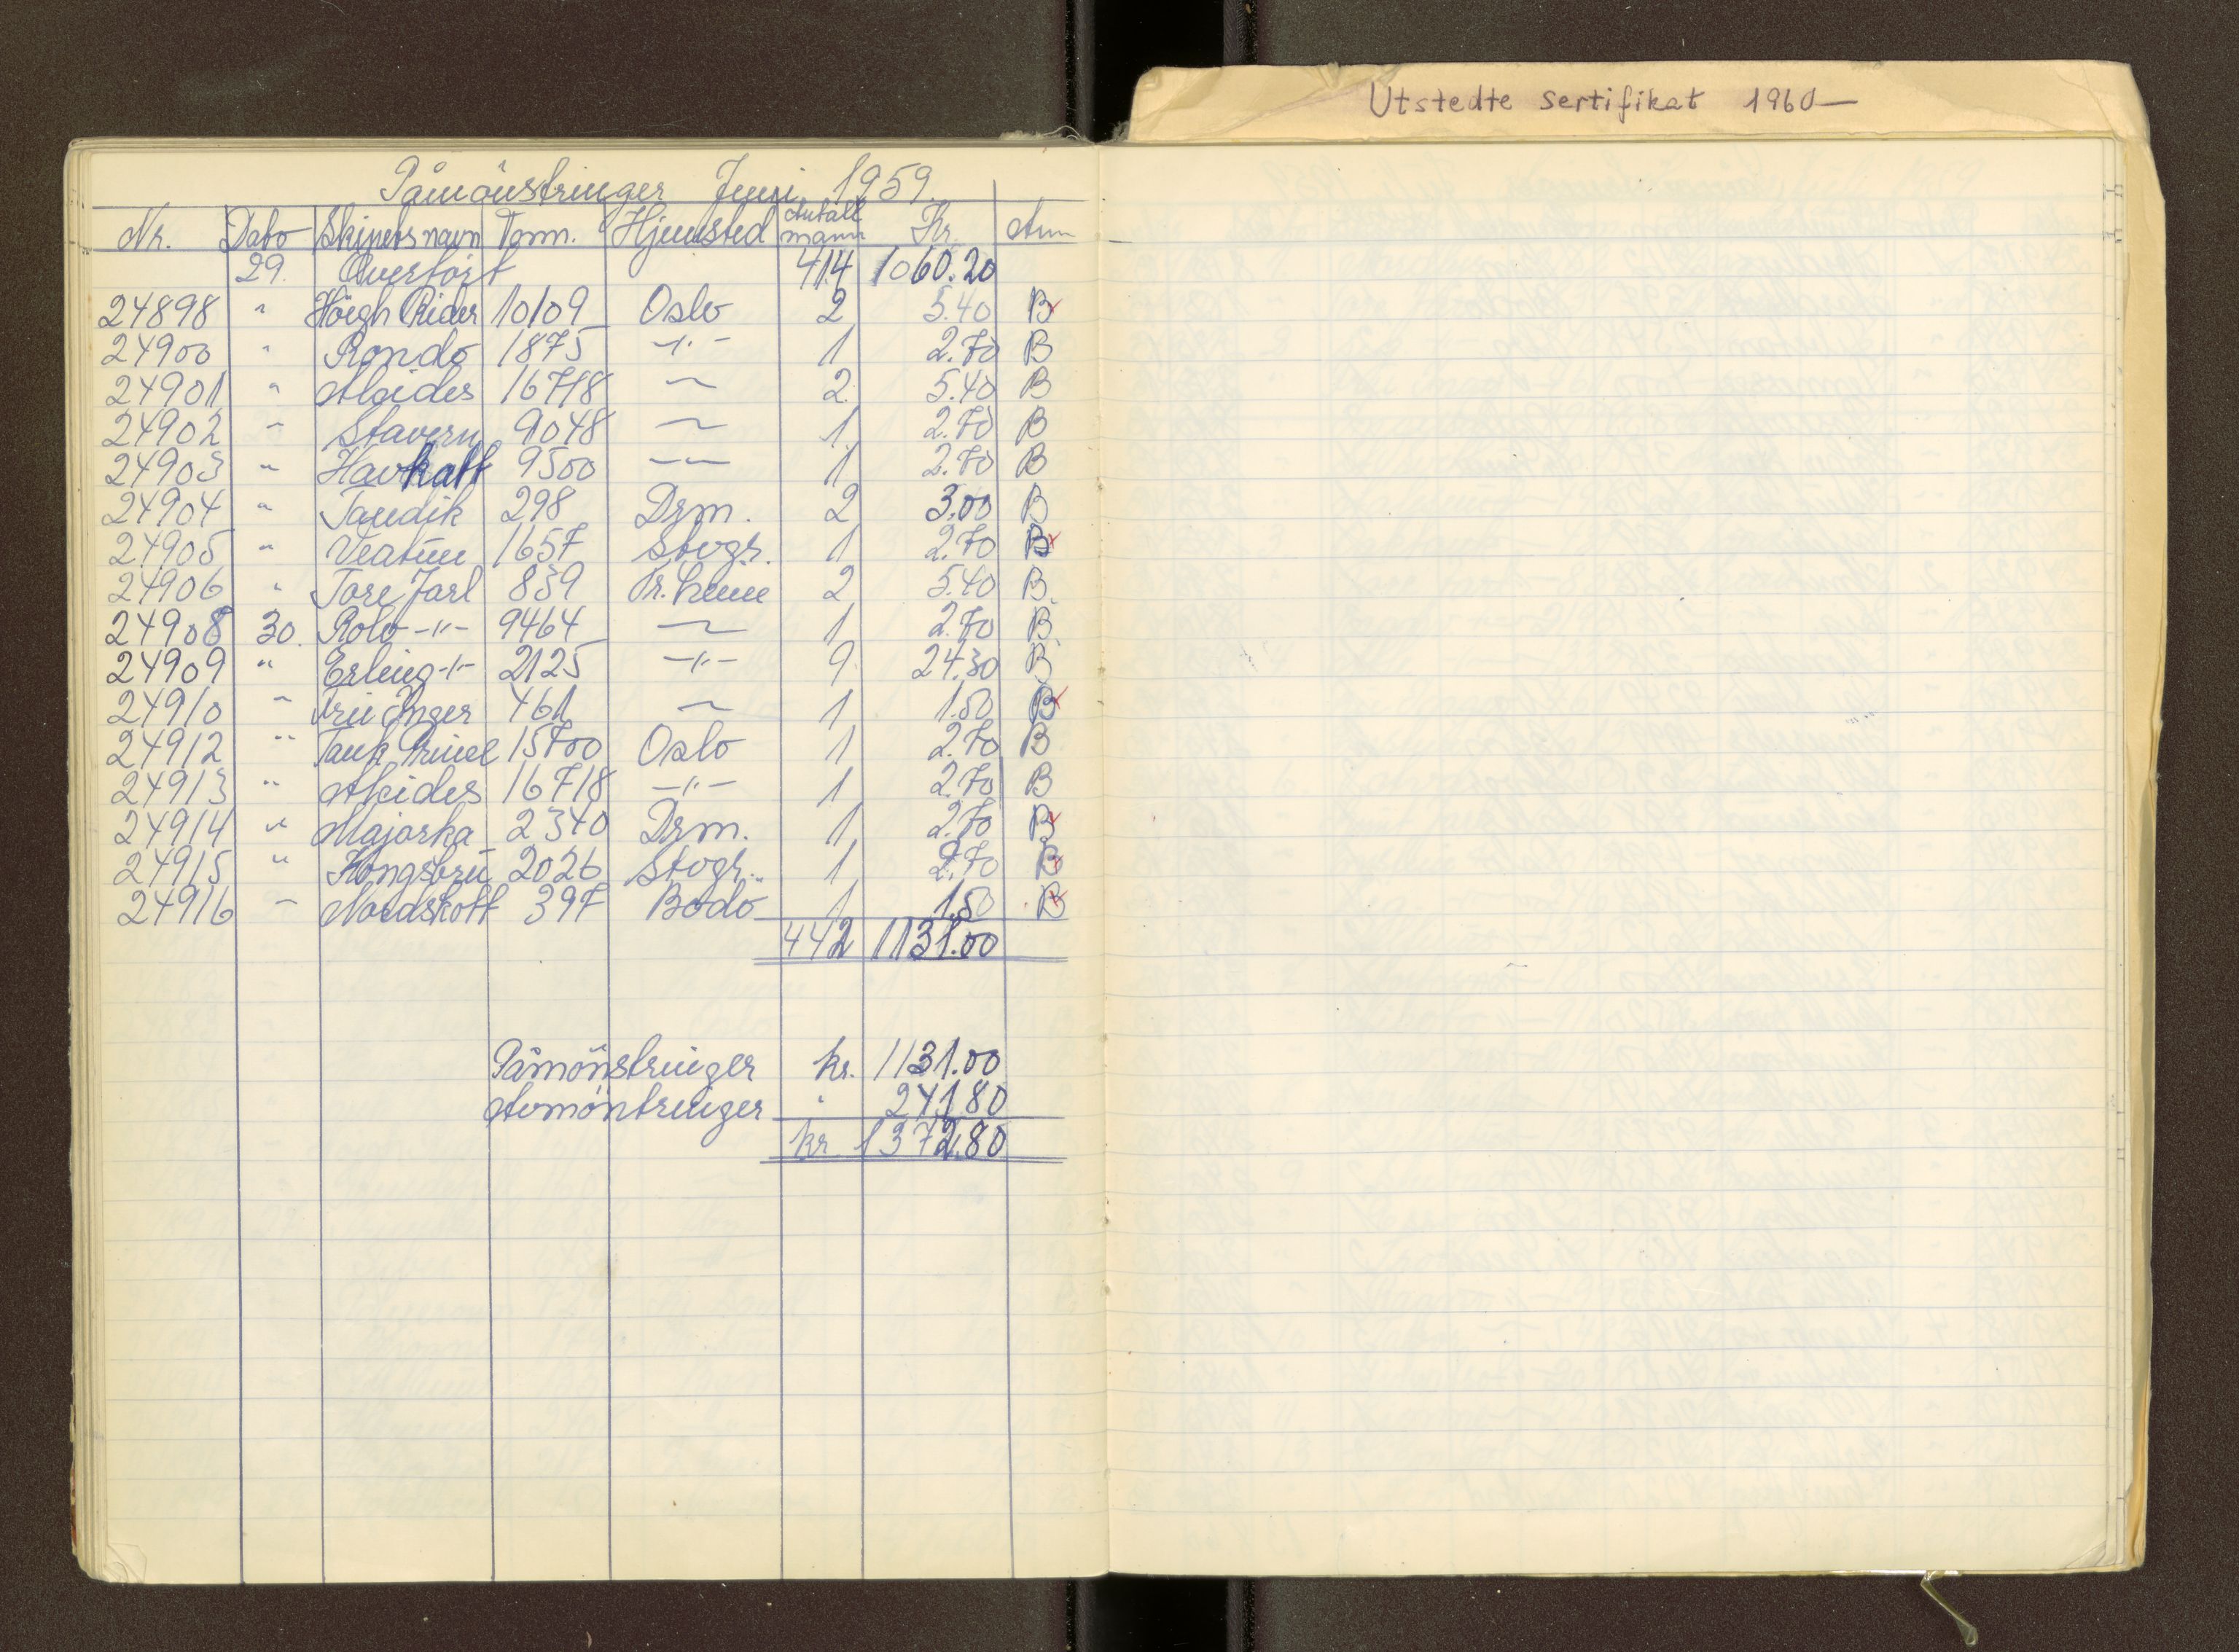 Utstedte sertifikat 1960—
Påmönstringer Juni 1959.
Nr. Dato Skipets navn Tonn. Hjemsted Antall mann Kr. Anm
29. Overfört 414 1060.20
24898 " Höegh Rider 10109 Oslo 2 5.40 B
24900 " Rondo 1875 -"- 1 2.70 B
24901 " Alcides 16718 — 2 5.40 B
24902 " Stavern 9048 — 1 2.70 B
24903 " Havkatt 9500 — 1 2.70 B
24904 " Tandik 298 Drm. 2 3.00 B
24905 " Veatun 1657 Stvgr. 1 2.70 B
24906 " Tore Jarl 839 Tr.heim 2 5.40 B.
24908 30. Rolv -"- 9464 — 1 2.70 B.
24909 " Erling -"- 2125 -"- 9 24.30 B
24910 " Fru Inger 461 — 1 1.50 B
24912 " Tank Princel 15700 Oslo 1 2.70 B
24913 " Alcides 16718 -"- 1 2.70 B
24914 " Majorka 2340 Drm. 1 2.70 B
24915 " Kongsbru 2026 Stvgr. 1 2.70 B
24916 " Nordskott 397 Bodö 1 1.50 B
442 1131.00
Påmönstringer kr. 1131.00
Avmöntringer " 241.80
kr. 1372.80